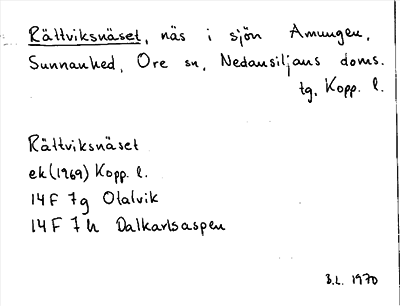 Rättviksnäset, näs i sjön Amungen,
Sunnanhed, Ore sn, Nedansiljans doms.
tg, Kopp. l.
Rättviksnäset
ek (1969) Kopp. l.
14 F 7g Olalvik
14 F 7h Dalkarlsaspen
B.L. 1970